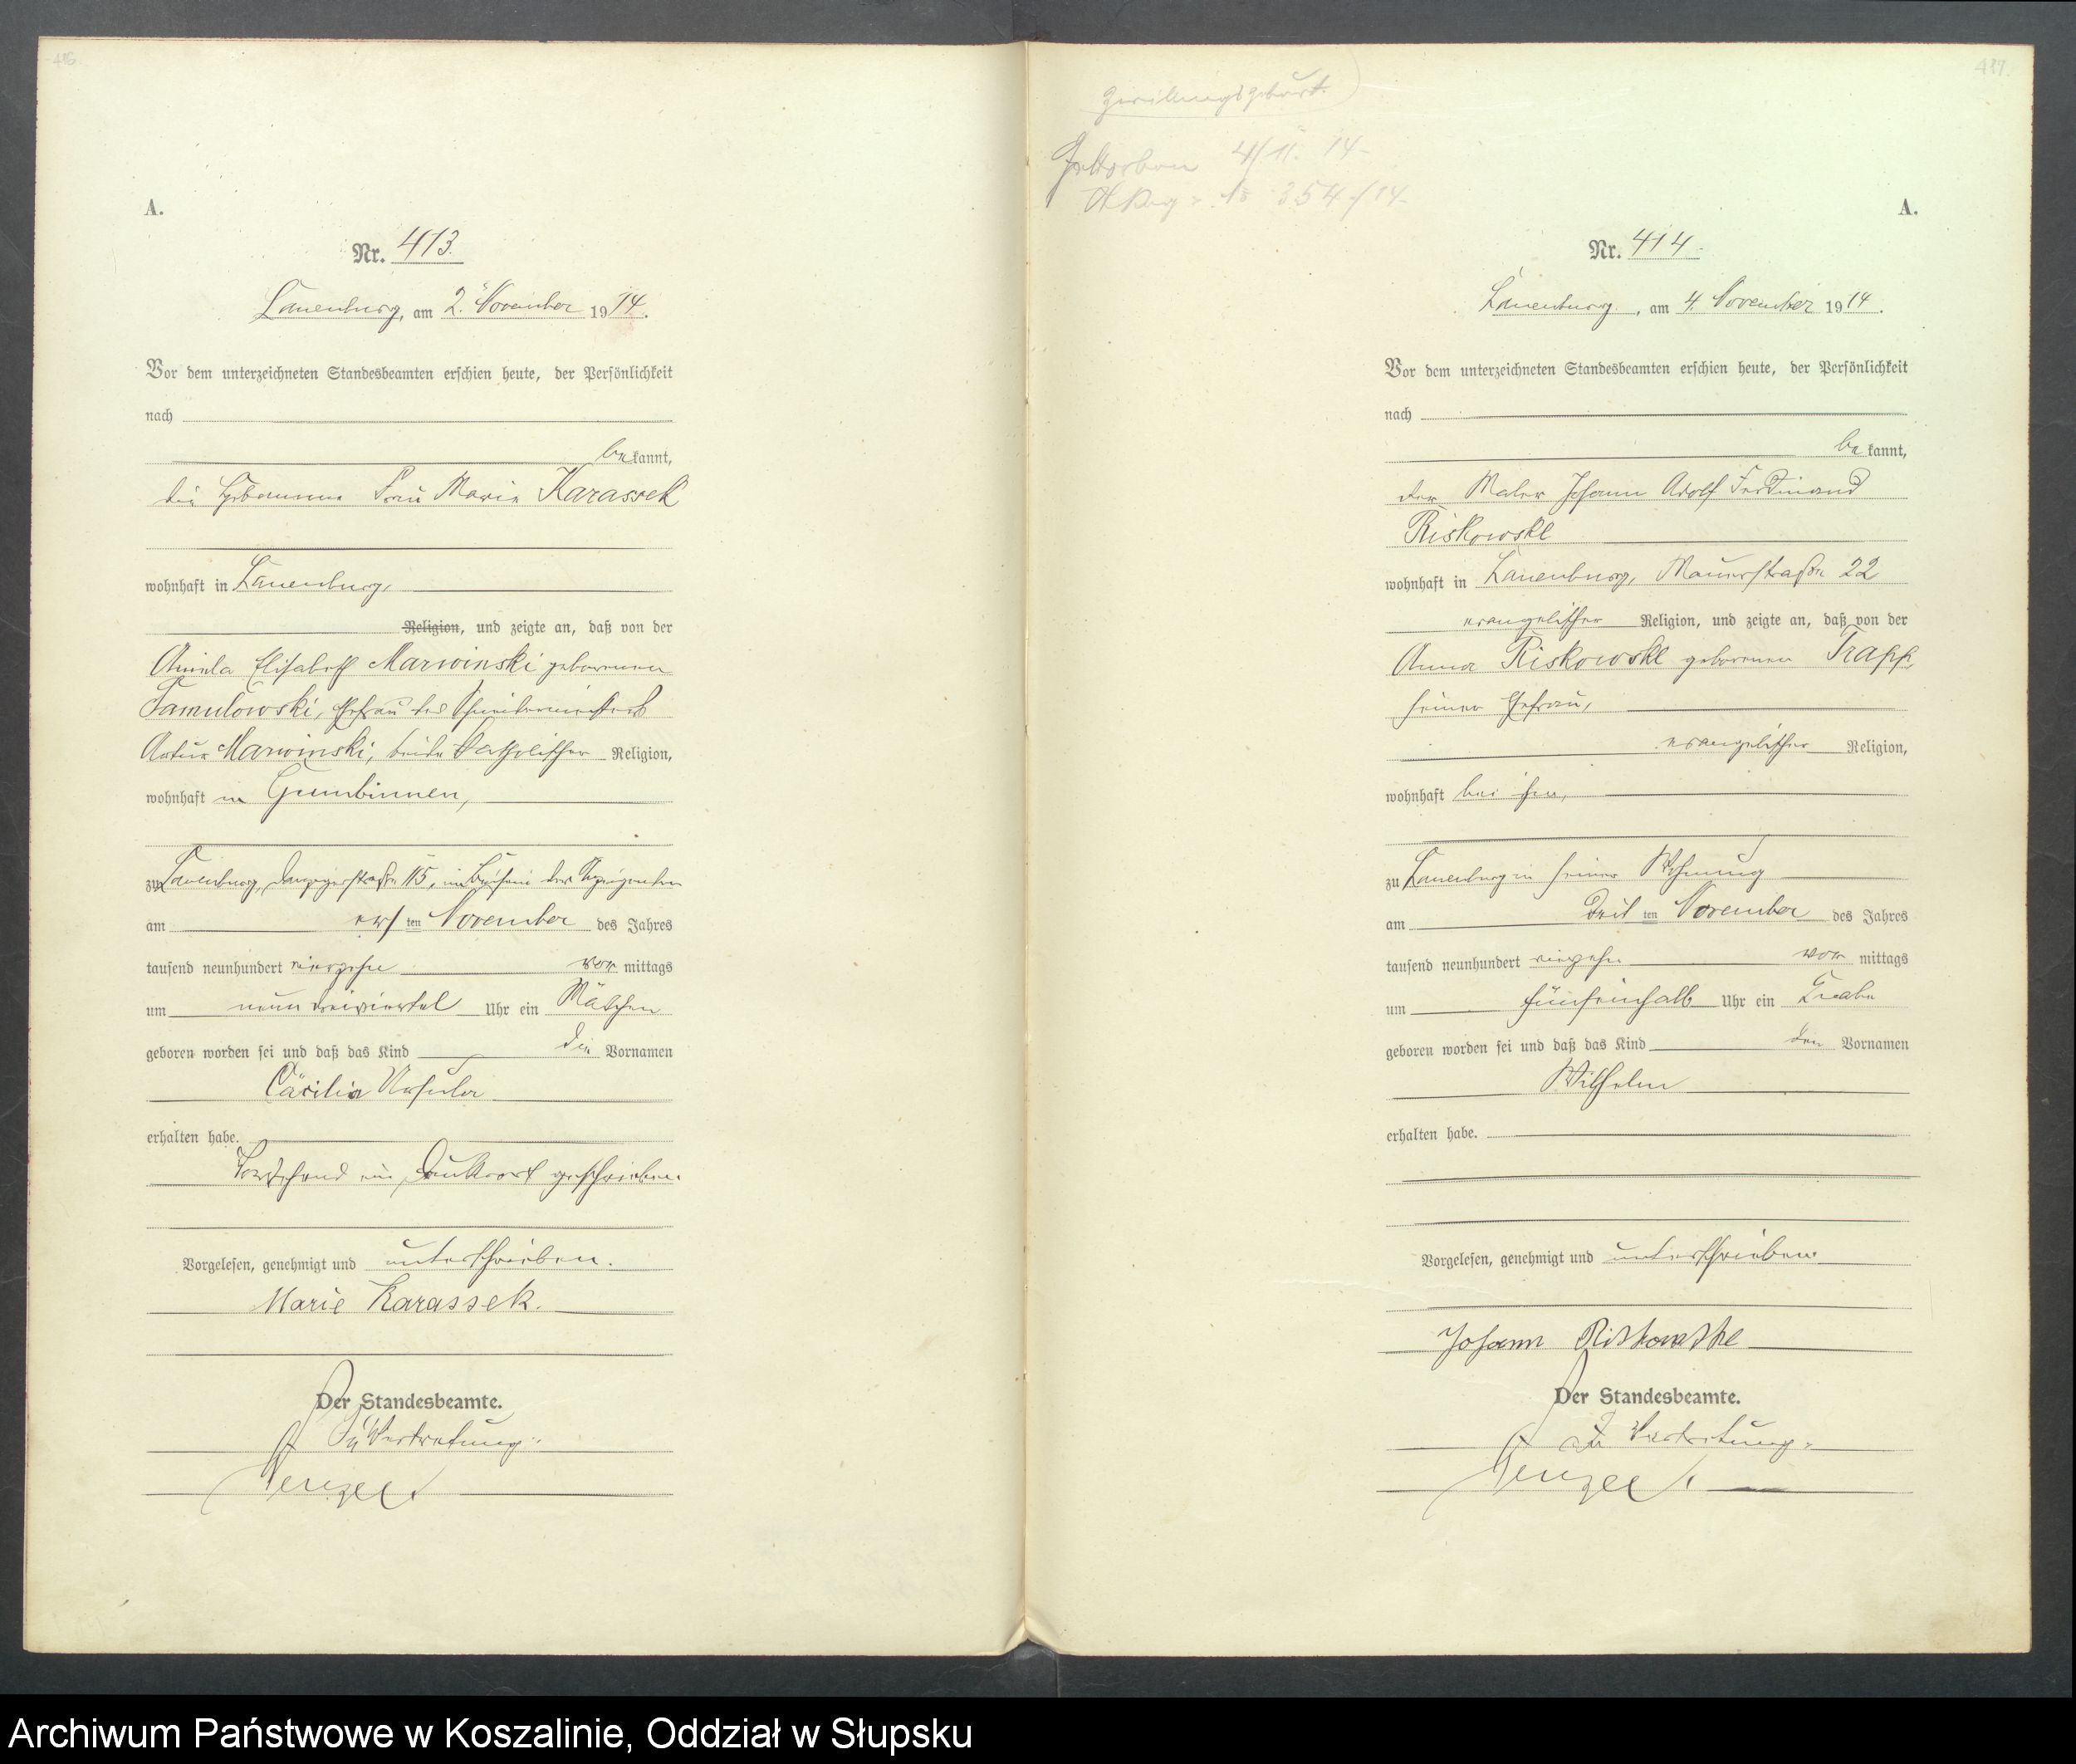 416.
A.
Nr. 413.
Lauenburg, am 2. November 1914.
Vor dem unterzeichneten Standesbeamten erschien heute, der Persönlichkeit
nach
bekannt,
die Hebamme Frau Marie Karassek
wohnhaft in Lauenburg,
Religion, und zeigte an, daß von der
Aniela Elisabeth Marwinski geborenen
Famulowski, Ehefrau des Schneidermeisters
Artur Marwinski, beide katholischer Religion,
wohnhaft in Gumbinnen,
zu Lauenburg, Danzigerstraße 115, im Beisein der Anzeigenden
am ersten November des Jahres
tausend neunhundert vierzehn vormittags
um neun dreiviertel Uhr ein Mädchen
geboren worden sei und daß das Kind die Vornamen
Cäcilia Ursula
erhalten habe.
Vorstehend ein Druckwort gestrichen.
Vorgelesen, genehmigt und unterschrieben.
Marie Karassek.
Der Standesbeamte.
In Vertretung:
Wenzel.
417.
Zwillingsgeburt.
Gestorben 4/11. 14
No 354/14
A.
Nr. 414.
Lauenburg, am 4. November 1914.
Vor dem unterzeichneten Standesbeamten erschien heute, der Persönlichkeit
nach
bekannt,
der Maler Johann Adolf Ferdinand
Riskowske
wohnhaft in Lauenburg, Mauerstraße 22
evangelischer Religion, und zeigte an, daß von der
Anna Riskowske geborenen Trapp,
seiner Ehefrau,
evangelischer Religion,
wohnhaft bei ihm,
zu Lauenburg in seiner Wohnung
am dritten November des Jahres
tausend neunhundert vierzehn vormittags
um fünfeinhalb Uhr ein Knabe
geboren worden sei und daß das Kind den Vornamen
Wilhelm
erhalten habe.
Vorgelesen, genehmigt und unterschrieben.
Johann Riskowske
Der Standesbeamte.
In Vertretung:
Wenzel.
Archiwum Państwowe w Koszalinie, Oddział w Słupsku